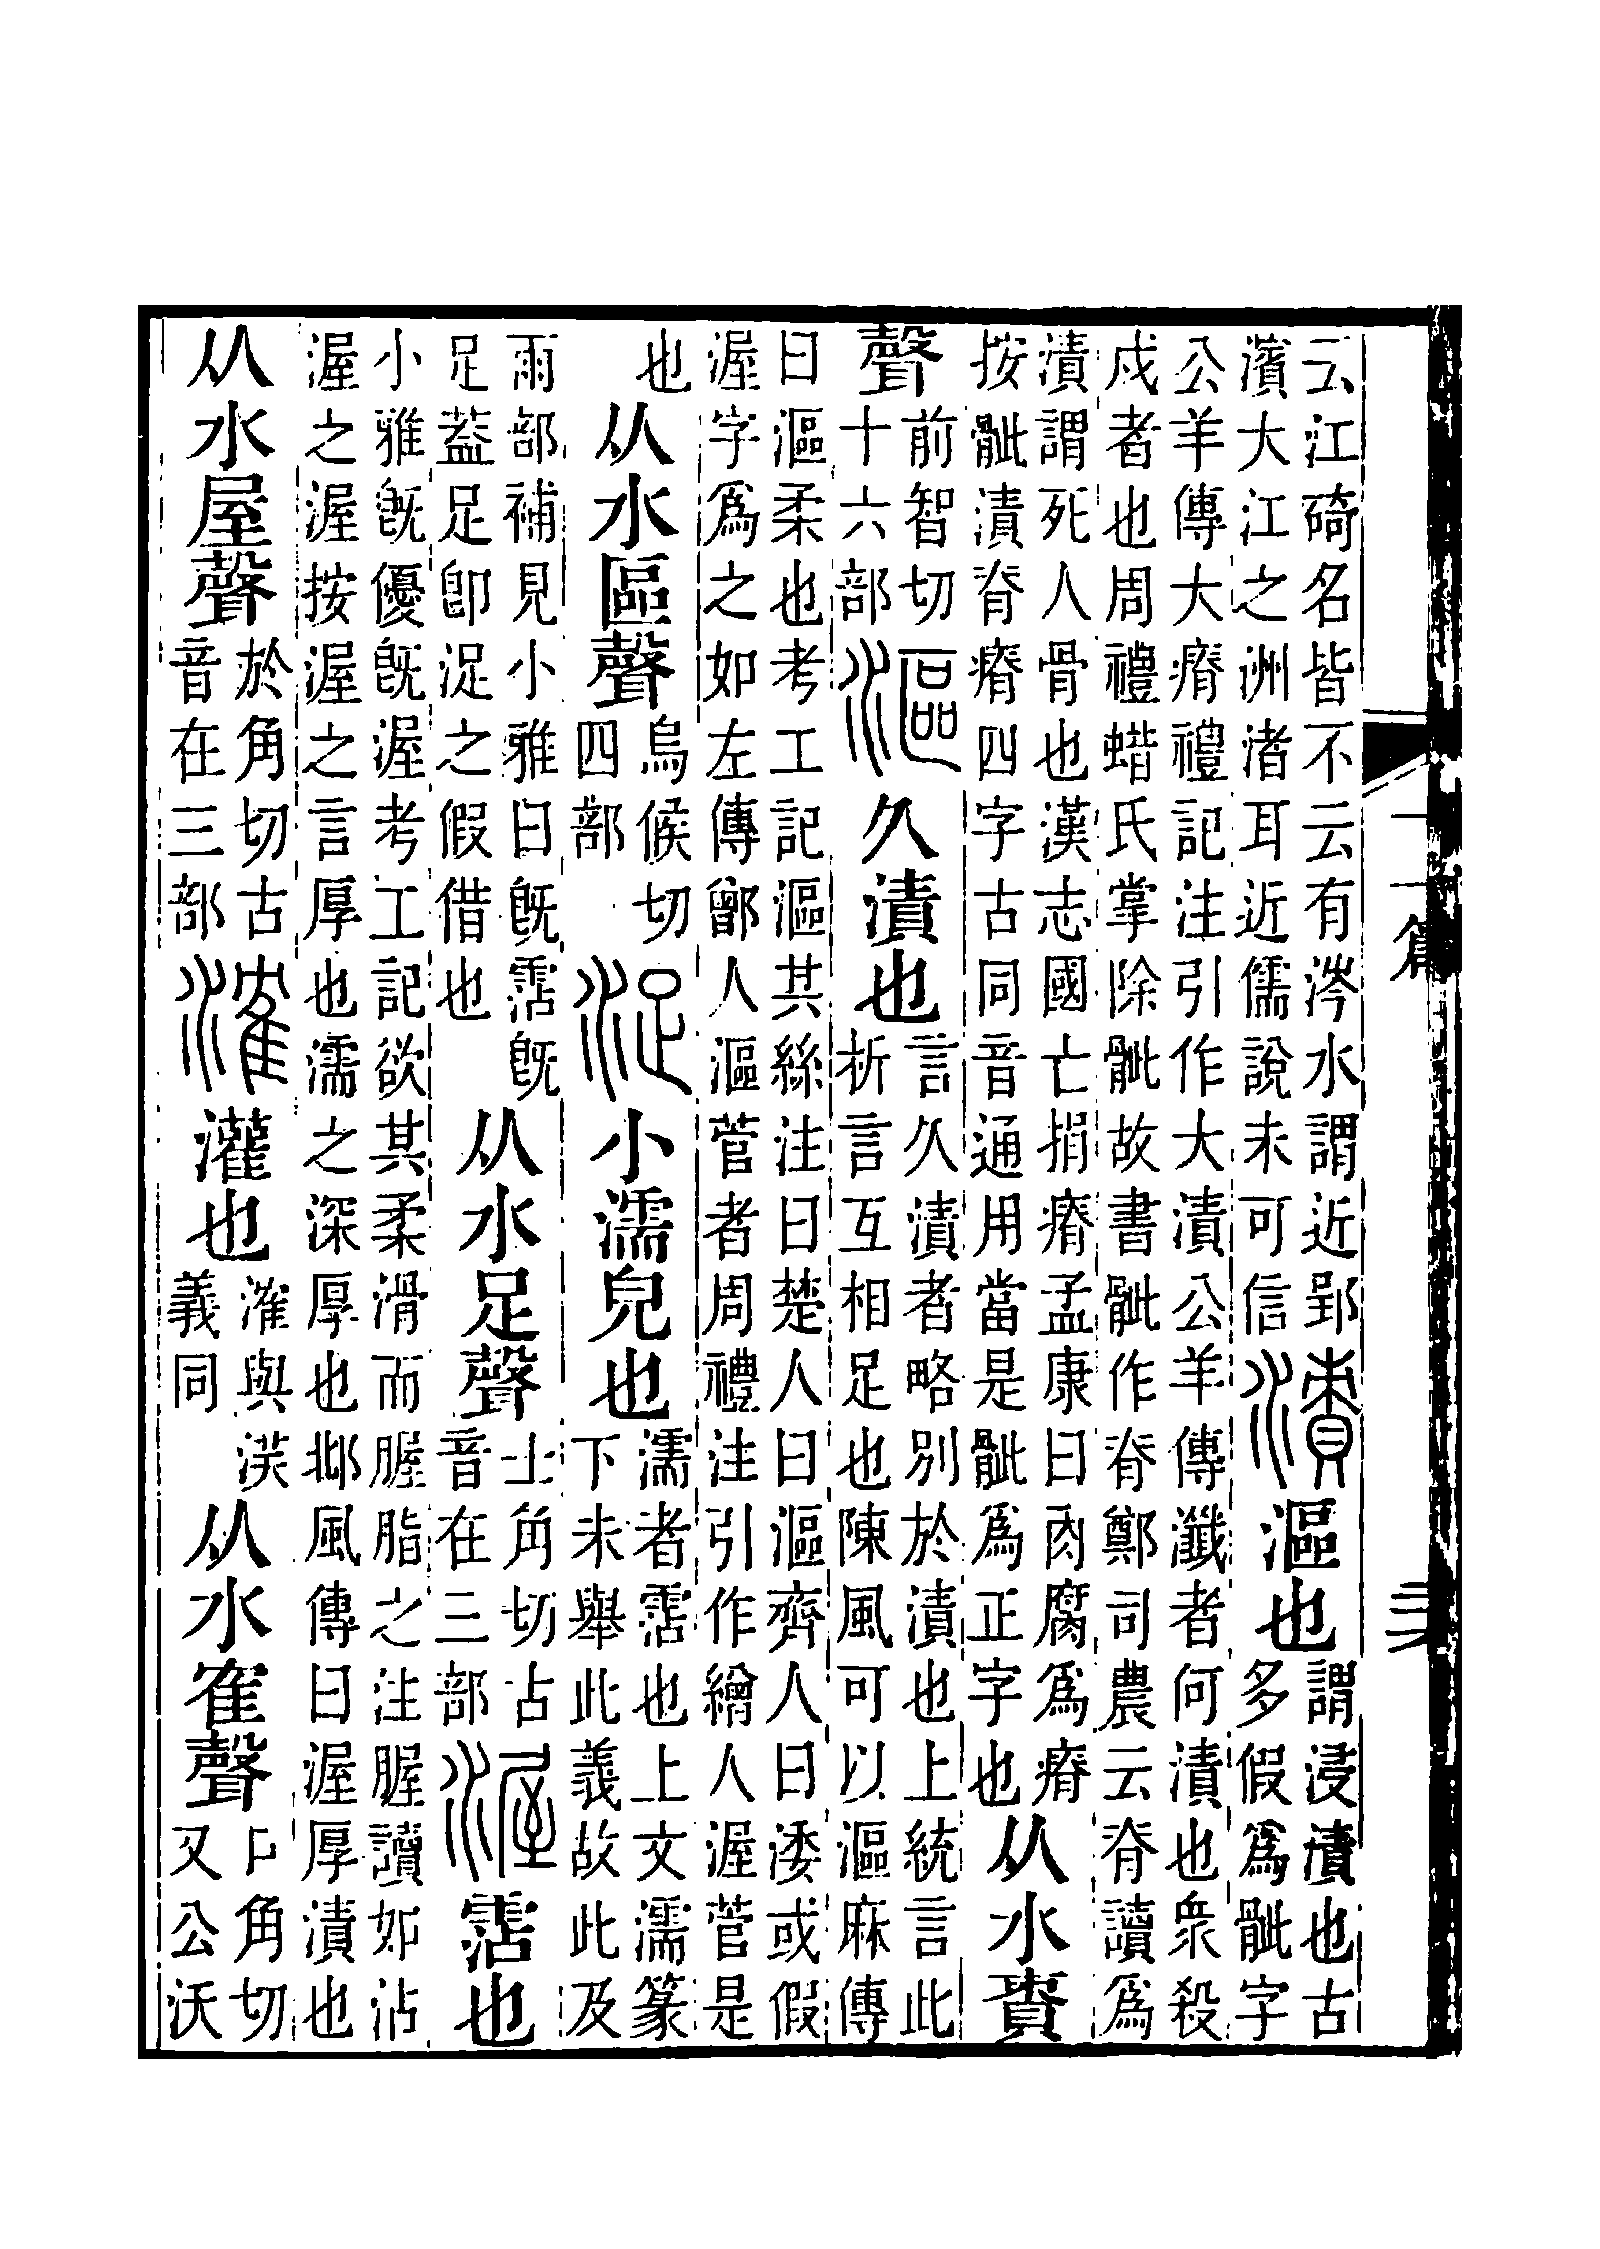 云江碕名皆不云有涔水謂近郢濱大江之洲渚耳近儒說未可信漬漚也謂浸漬也古多假爲骴字
公羊傳大瘠禮記注引作大漬公羊傳瀸者何漬也衆殺戍者也周禮蜡氏掌除骴故書骴作脊鄭司農云脊讀爲
漬謂死人骨也漢志國亡捐瘠孟康曰肉腐爲瘠按骴漬脊瘠四字古同音通用當是骴爲正字也从水責
聲前智切十六部漚久漬也言久漬者略別於漬也上統言此析言互相足也陳風可以漚麻傳
曰漚柔也考工記漚其絲注曰楚人曰漚齊人曰涹或假渥字爲之如左傳鄫人漚菅者周禮注引作繒人渥菅是
也从水區聲烏候切四部浞小濡皃也濡者霑也上文濡篆下未舉此義故此及
雨部補見小雅曰旣霑旣足葢足卽浞之假借也从水足聲士角切古音在三部渥霑也
小雅旣優旣渥考工記欲其柔滑而腛脂之注腛讀如沾渥之渥按渥之言厚也濡之深厚也邶風傳曰渥厚漬也
从水屋聲於角切古音在三部㴶灌也㴶與𣵽義同从水隺聲口角切又公沃